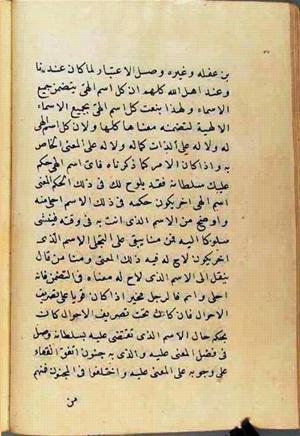 بن عفله وغيره وصل الاعتبار لما كان عندنا
وعند اهل الله كلهم ان كل اسم الهى يتضمن جميع
الاسماء ولهذا ينعت كل اسم الهى بجميع الاسماء
الالهية لتضمنه معناها كلها ولان كل اسم الهى
له دلالة على الذات كما له دلالة على المعنى الخاص
به واذا كان الامر كما ذكرناه فاى اسم الهى حكم
عليك سلطانه فقد يلوح لك فى ذلك الحكم المعنى
اسم الهى اخر يكون حكمه فى ذلك الاسم اجلى منه
واوضح من الاسم الذى انت به فى وقته فينشى
سلوكا اليه فمن منا يبقى على تجلى الاسم الذى
يكون اخر لاح له فيه ذلك المعنى ومنا من قال
ينقل الى الاسم الذى لاح له معناه فى التضمن فانه
اجلى واتم فالرجل مخير اذا كان قويا على تصريف
الاحوال فان كان تحت تصريف الاحوال كان
بحكم حال الاسم الذى تقتضى عليه بسلطانه وصل
فى فضل المغمى عليه والذى به جنون اتفق الفقهاء
على وجوبه على المغمى عليه واختلفوا فى المجنون فمنهم
من